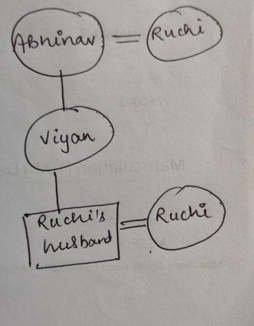 Abhinav = Ruchi
Viyan
Ruchi's
husband = Ruchi